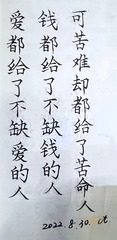 可苦难却都给了苦命人
钱都给了不缺钱的人
爱都给了不缺爱的人
2022.8.30. ct.